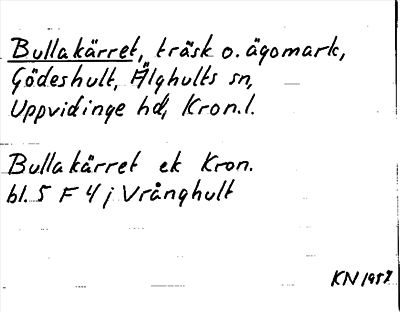 Bullakärret, träsk o. ägomark,
Gödeshult, Älghults sn,
Uppvidinge hd, Kron.l.
Bullakärret ek Kron.
bl. 5 F 4 j Vrånghult
KN 1957